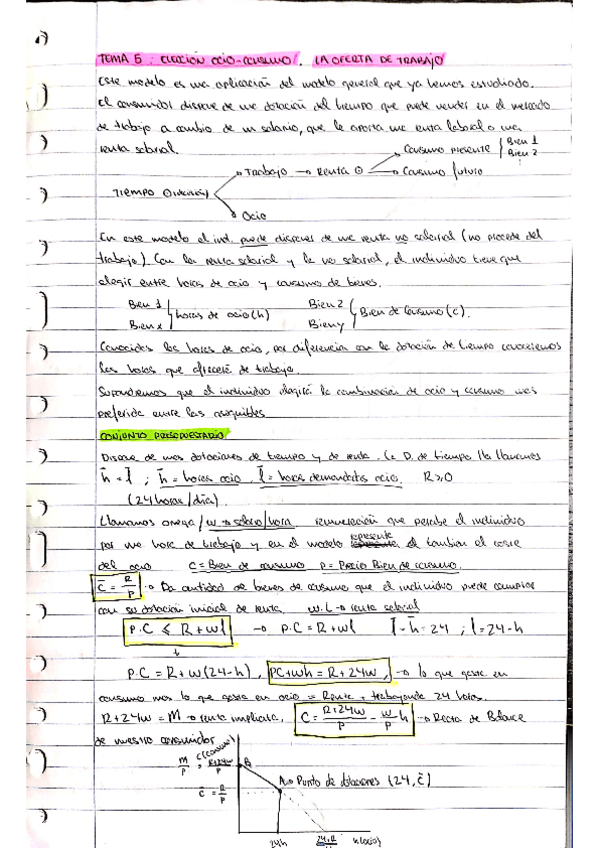 TEMA 5: ELECCIÓN OCIO-CONSUMO. LA OFERTA DE TRABAJO
Este modelo es una aplicación del modelo general que ya hemos estudiado.
El consumidor dispone de una dotación del tiempo que puede vender en el mercado
de trabajo a cambio de un salario, que le aporta una renta laboral o una
renta salarial.
Consumo presente { Bien 1
Bien 2
Trabajo → Renta → Consumo futuro
TIEMPO
Ocio
En este modelo el ind. puede disponer de una renta no salarial (no procede del
trabajo). Con la renta salarial y la no salarial, el individuo tiene que
elegir entre horas de ocio y consumo de bienes.
Bien 1 Bien 2
Bien x } horas de ocio (h) Bien y } Bien de consumo (c).
Conocidas las horas de ocio, por diferencia con la dotación de tiempo conoceremos
las horas que ofrecerá de trabajo.
Supondremos que el individuo elegirá la combinación de ocio y consumo más
preferida entre las asequibles
CONJUNTO PRESUPUESTARIO
Dispone de unas dotaciones de tiempo y de renta. La D. de tiempo la llamamos
h̄ = l̄ ; h̄ = horas ocio, l̄ = horas demandadas ocio. R≥0
(24 horas/día)
Llamamos omega / w → salario/hora remuneración que percibe el individuo
por una hora de trabajo y en el modelo representa el también el coste
del ocio C = Bien de consumo P = Precio Bien de consumo.
C̄ = R/P → Da cantidad de bienes de consumo que el individuo puede comprar
con su dotación inicial de renta. w.L → renta salarial
P.C ≤ R + wl → P.C = R + wl l̄ - h̄ = 24 ; l = 24-h
↓
P.C = R + w(24-h), PC + wh = R + 24w, → lo que gasta en
consumo más lo que gasta en ocio = Renta + trabajando 24 horas.
R+24w = M → renta implícita. C = R+24w/P - w/P h → Recta de Balance
de nuestro consumidor
C (consumo)
M/P = R+24w/P B
A → Punto de dotaciones (24, C̄)
C̄ = R/P
24h h (ocio)